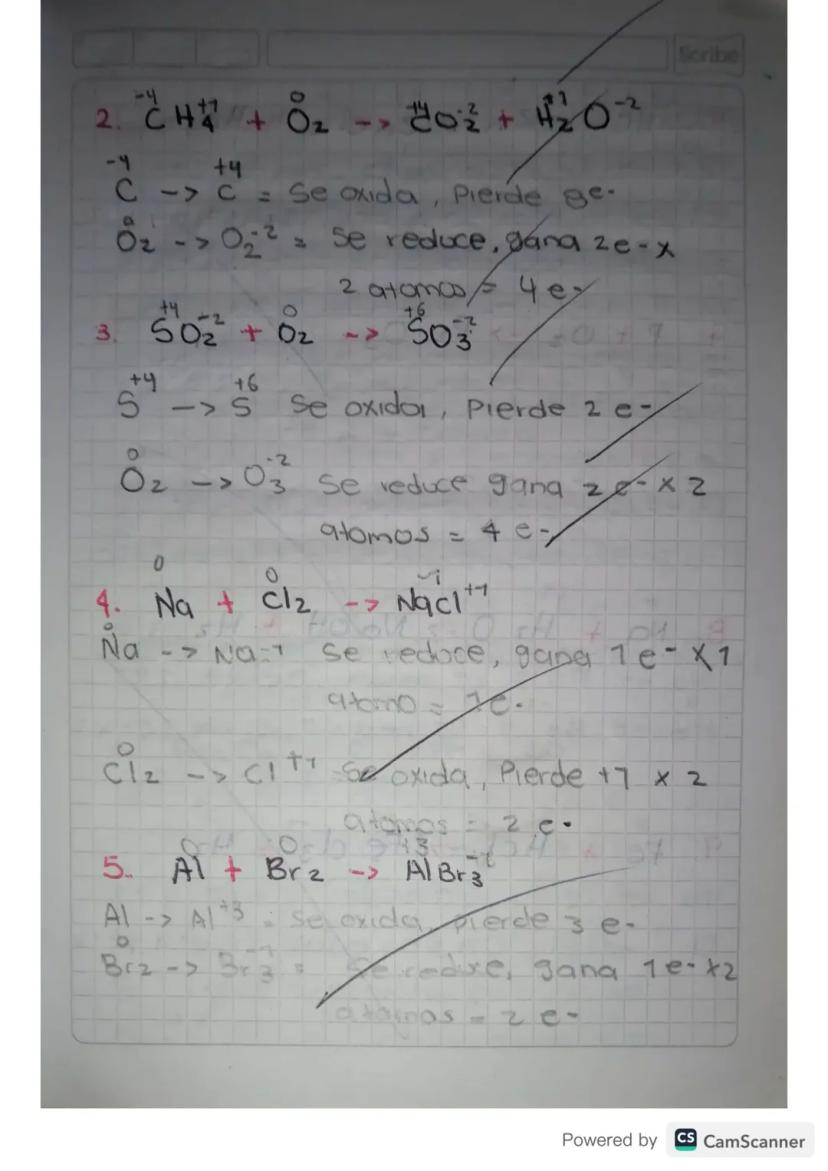 Scribe
2. C⁻⁴ H₄⁺¹ + O₂⁰ --> C⁺⁴O₂⁻² + H₂⁺¹O⁻²
C⁻⁴ --> C⁺⁴ = Se oxida, Pierde 8e-
O₂⁰ --> O₂⁻² = Se reduce, gana 2e- x
2 atomos = 4 e-
3. S⁺⁴O₂⁻² + O₂⁰ --> S⁺⁶O₃⁻²
S⁺⁴ --> S⁺⁶ Se oxida, Pierde 2 e-
O₂⁰ --> O₃⁻² Se reduce gana 2 e- x 2
atomos = 4 e-
4. Na⁰ + Cl₂⁰ --> Na⁻¹Cl⁺¹
Na⁰ --> Na-1 Se reduce, gana 1 e- x 1
atomo = 1e-
Cl₂⁰ --> Cl⁺¹ = Se oxida, Pierde +1 x 2
atomos = 2 e-
5. Al⁰ + Br₂⁰ --> Al⁺³Br₃⁻¹
Al --> Al⁺³ = Se oxida, pierde 3 e-
Br₂⁰ --> Br₃⁻¹ = Se reduce, gana 1e- x2
atomos = 2 e-
Powered by CS CamScanner